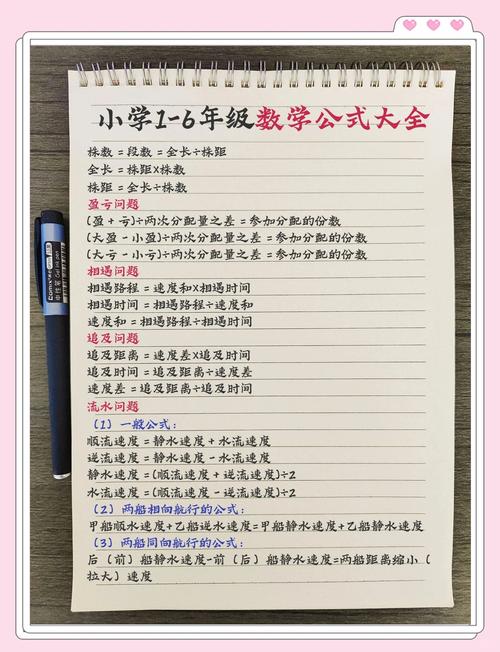 小学1-6年级数学公式大全
株数 = 段数 = 全长÷株距
全长 = 株距×株数
株距 = 全长÷株数
盈亏问题
(盈 + 亏)÷两次分配量之差 = 参加分配的份数
(大盈 - 小盈)÷两次分配量之差 = 参加分配的份数
(大亏 - 小亏)÷两次分配量之差 = 参加分配的份数
相遇问题
相遇路程 = 速度和×相遇时间
相遇时间 = 相遇路程÷速度和
速度和 = 相遇路程÷相遇时间
追及问题
追及距离 = 速度差×追及时间
追及时间 = 追及距离÷速度差
速度差 = 追及距离÷追及时间
流水问题
（1）一般公式：
顺流速度 = 静水速度 + 水流速度
逆流速度 = 静水速度 - 水流速度
静水速度 =(顺流速度 + 逆流速度)÷2
水流速度 =(顺流速度 - 逆流速度)÷2
（2）两船相向航行的公式：
甲船顺水速度+乙船逆水速度=甲船静水速度+乙船静水速度
（3）两船同向航行的公式：
后（前）船静水速度-前（后）船静水速度=两船距离缩小（
拉大）速度